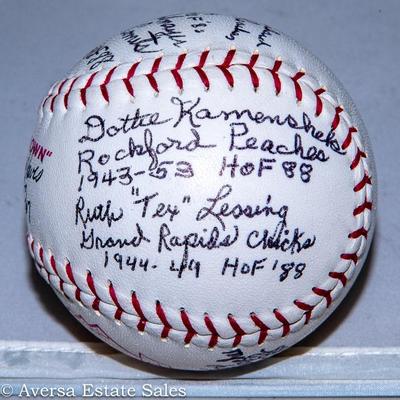 HOF '88
Dottie Kamenshek
Rockford Peaches
1943-'53 HOF 88
Ruth "Tex" Lessing
Grand Rapids Chicks
1944-49 HOF '88
© Aversa Estate Sales